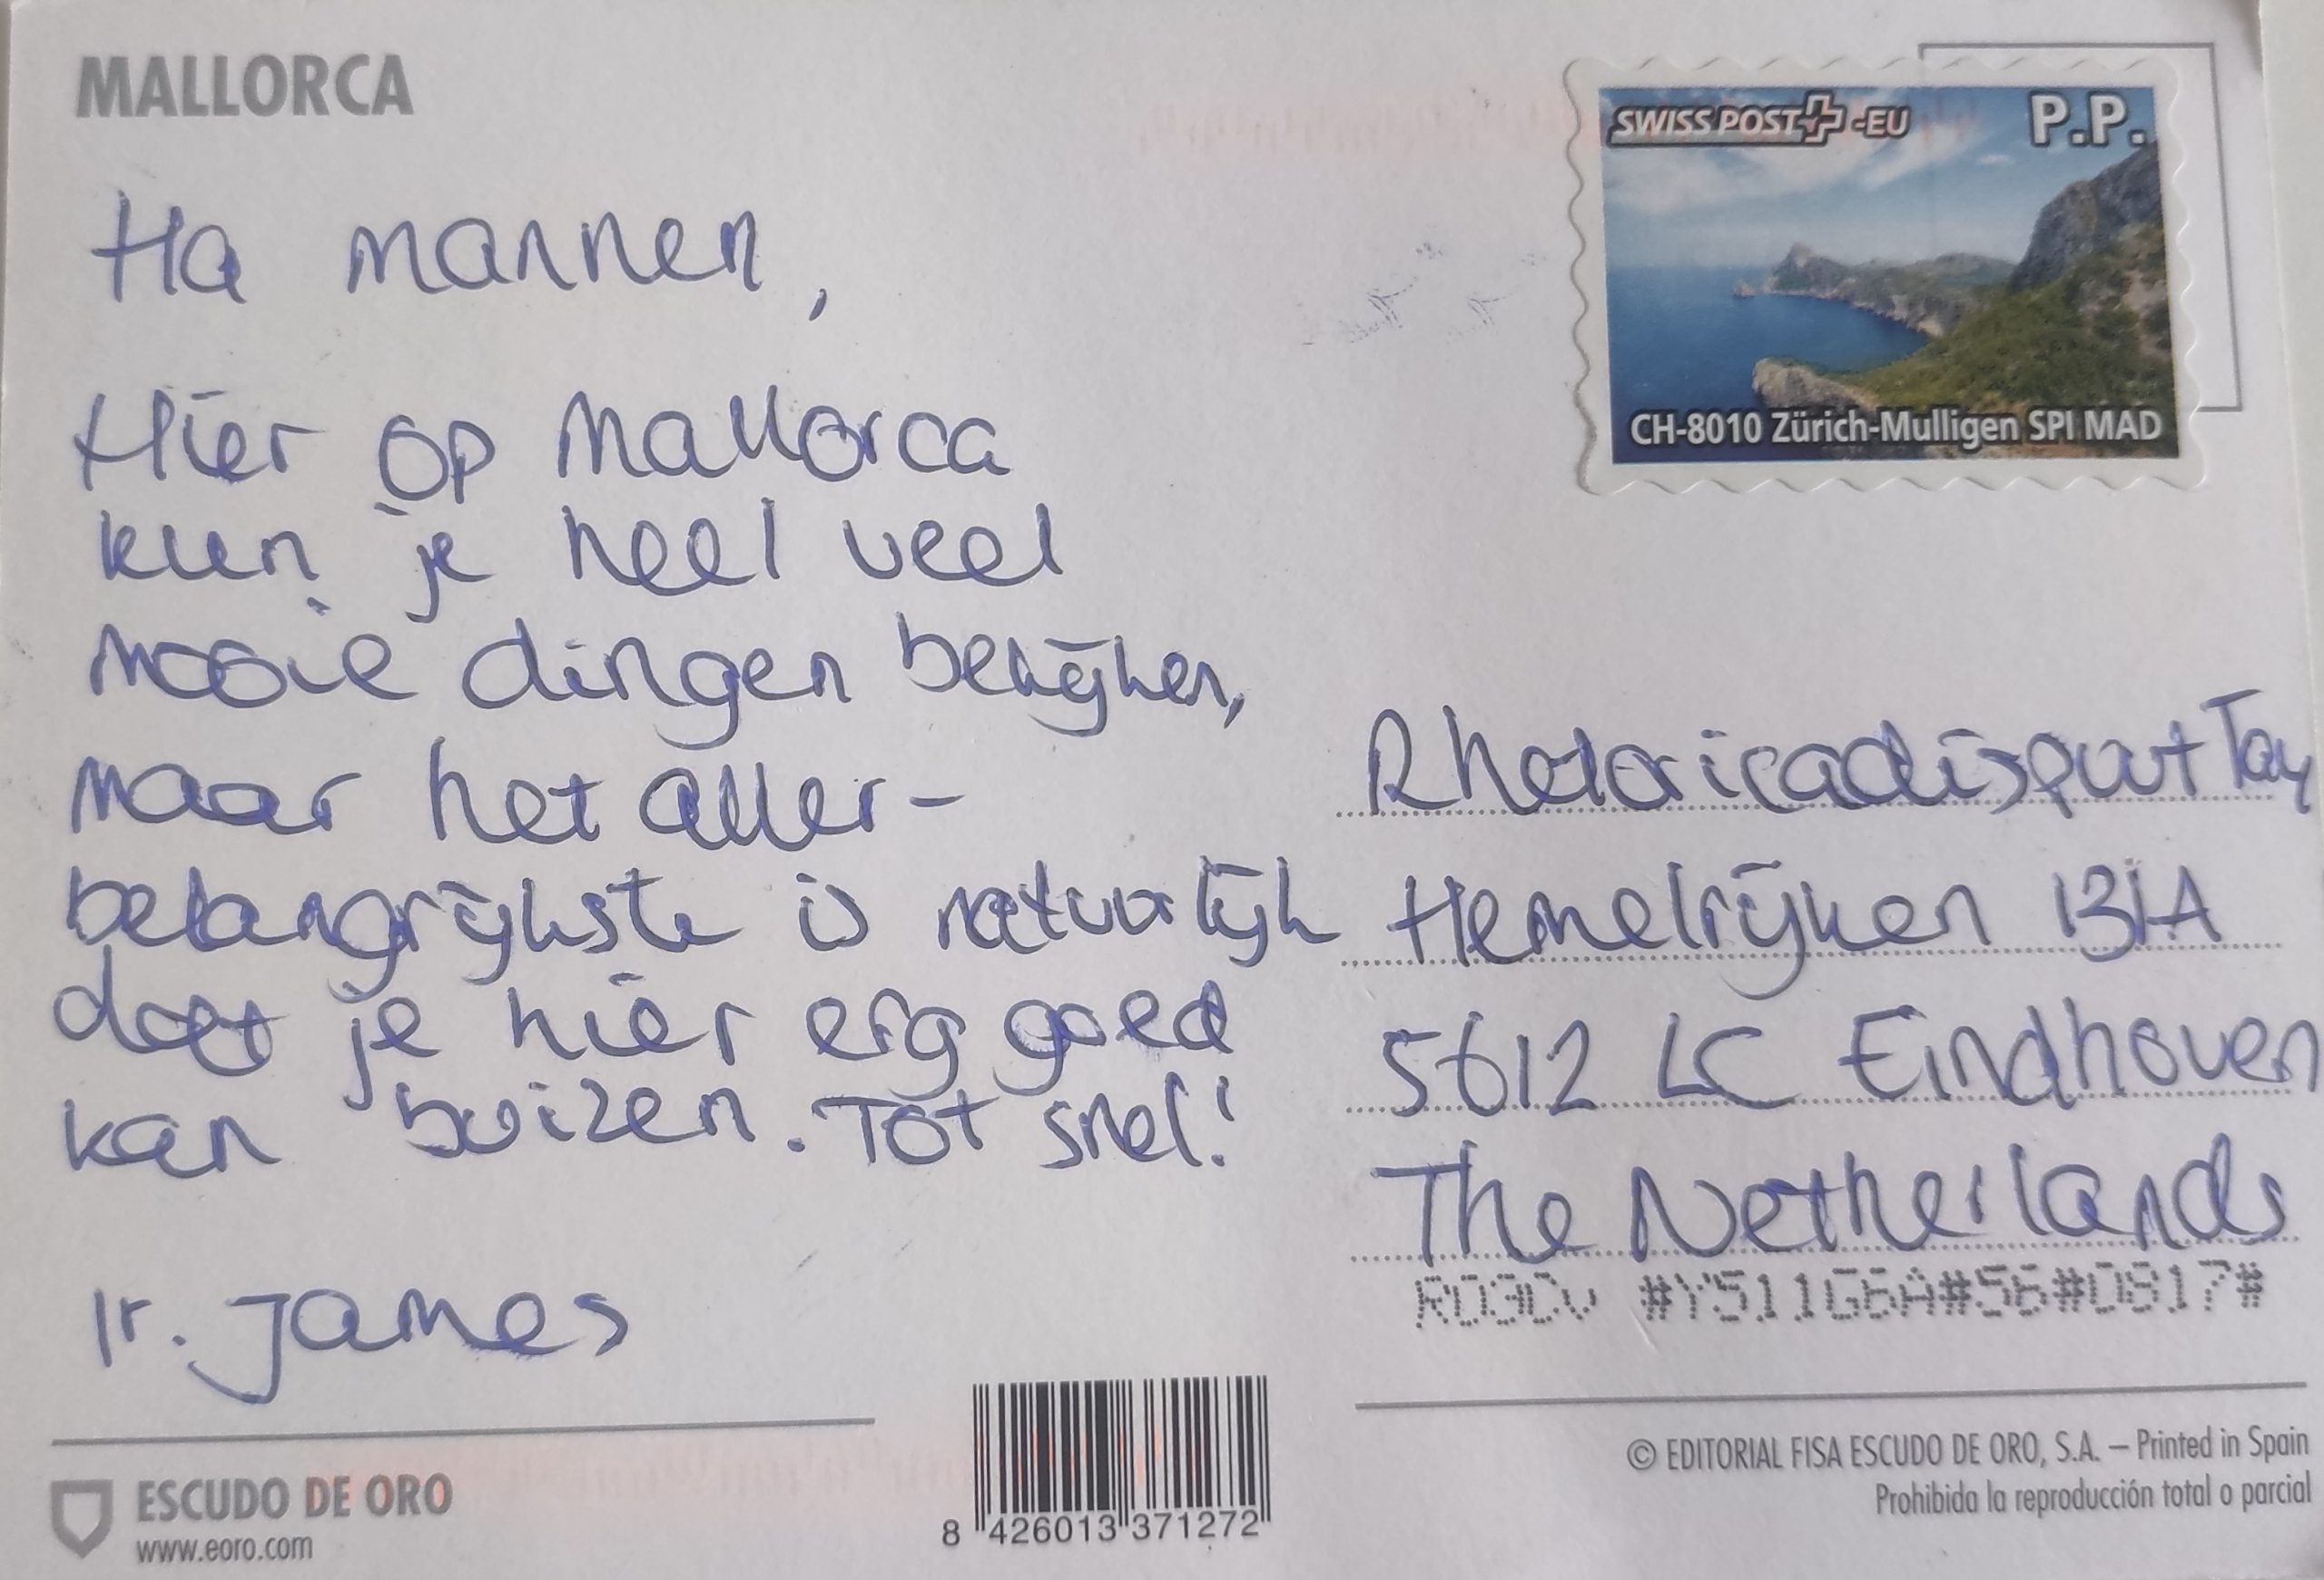 MALLORCA
Ha mannen,
Hier op Mallorca
kun je heel veel
mooie dingen bekijken,
maar het aller-
belangrijkste is natuurlijk
dat je hier erg goed
kan buizen. Tot snel!
Ir. James
ESCUDO DE ORO
www.eoro.com
8 426013 371272
SWISS POST -EU P.P.
CH-8010 Zürich-Mulligen SPI MAD
Rhetoricadispuut Tau
Hemelrijken 131A
5612 LC Eindhoven
The Netherlands
#Y511G6A#56#0817#
© EDITORIAL FISA ESCUDO DE ORO, S.A. – Printed in Spain
Prohibida la reproducción total o parcial